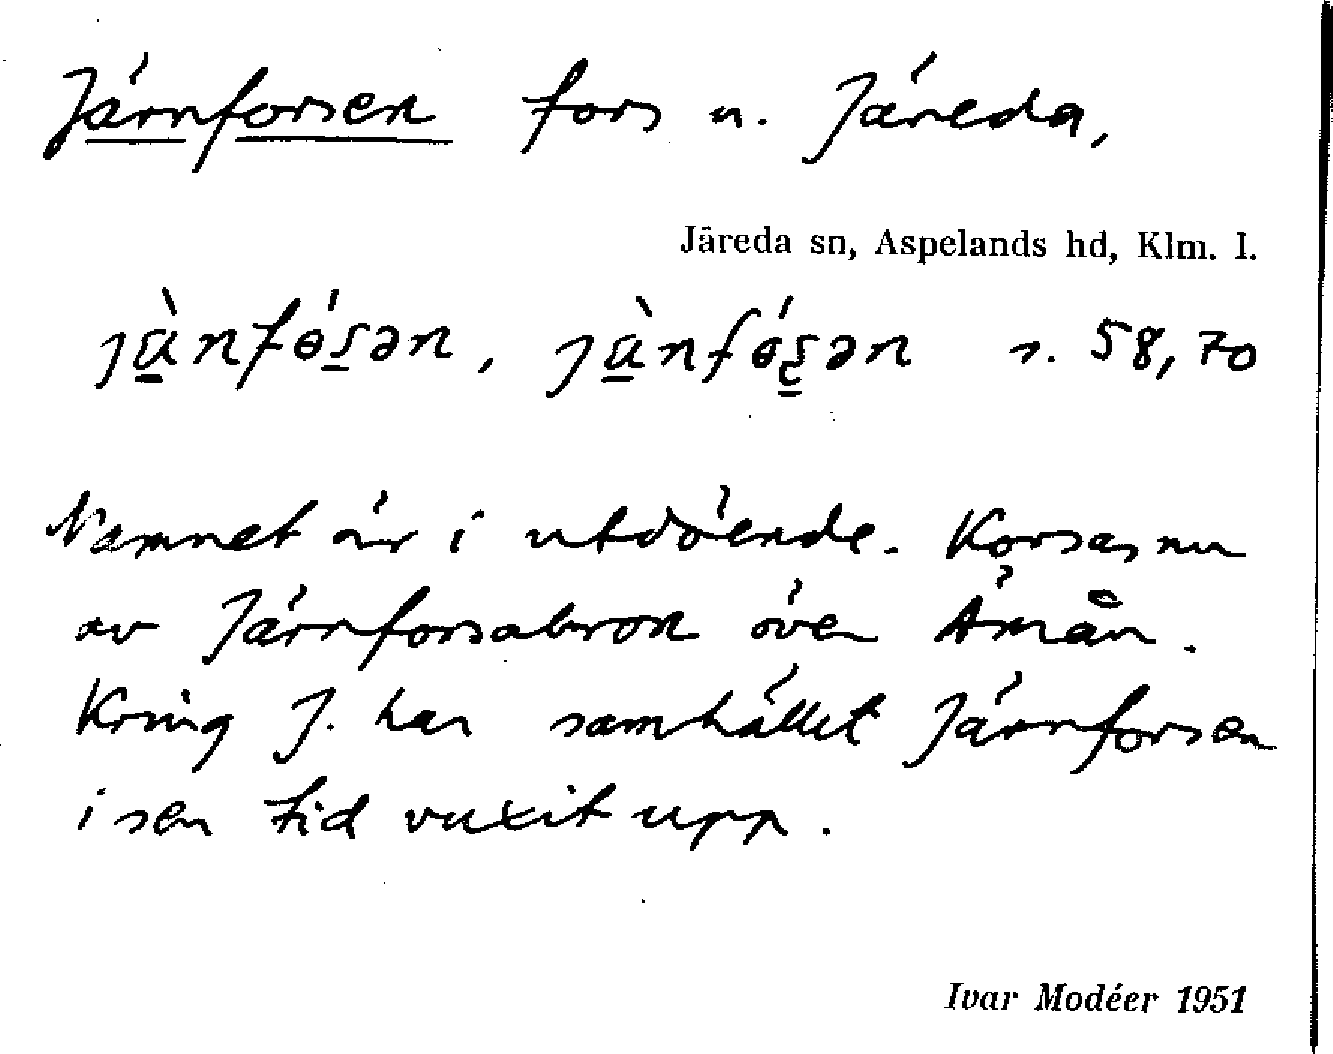 Järnforsen fors u. Järeda,
Järeda sn, Aspelands hd, Klm. l.
jànfɵ́ʂən, jànfɵ́ʂən s. 58, 70
Namnet är i utdöende. Korsas nu
av Järnforsabron över Åmån.
Kring J. har samhället Järnforsen
i sen tid vuxit upp.
Ivar Modéer 1951